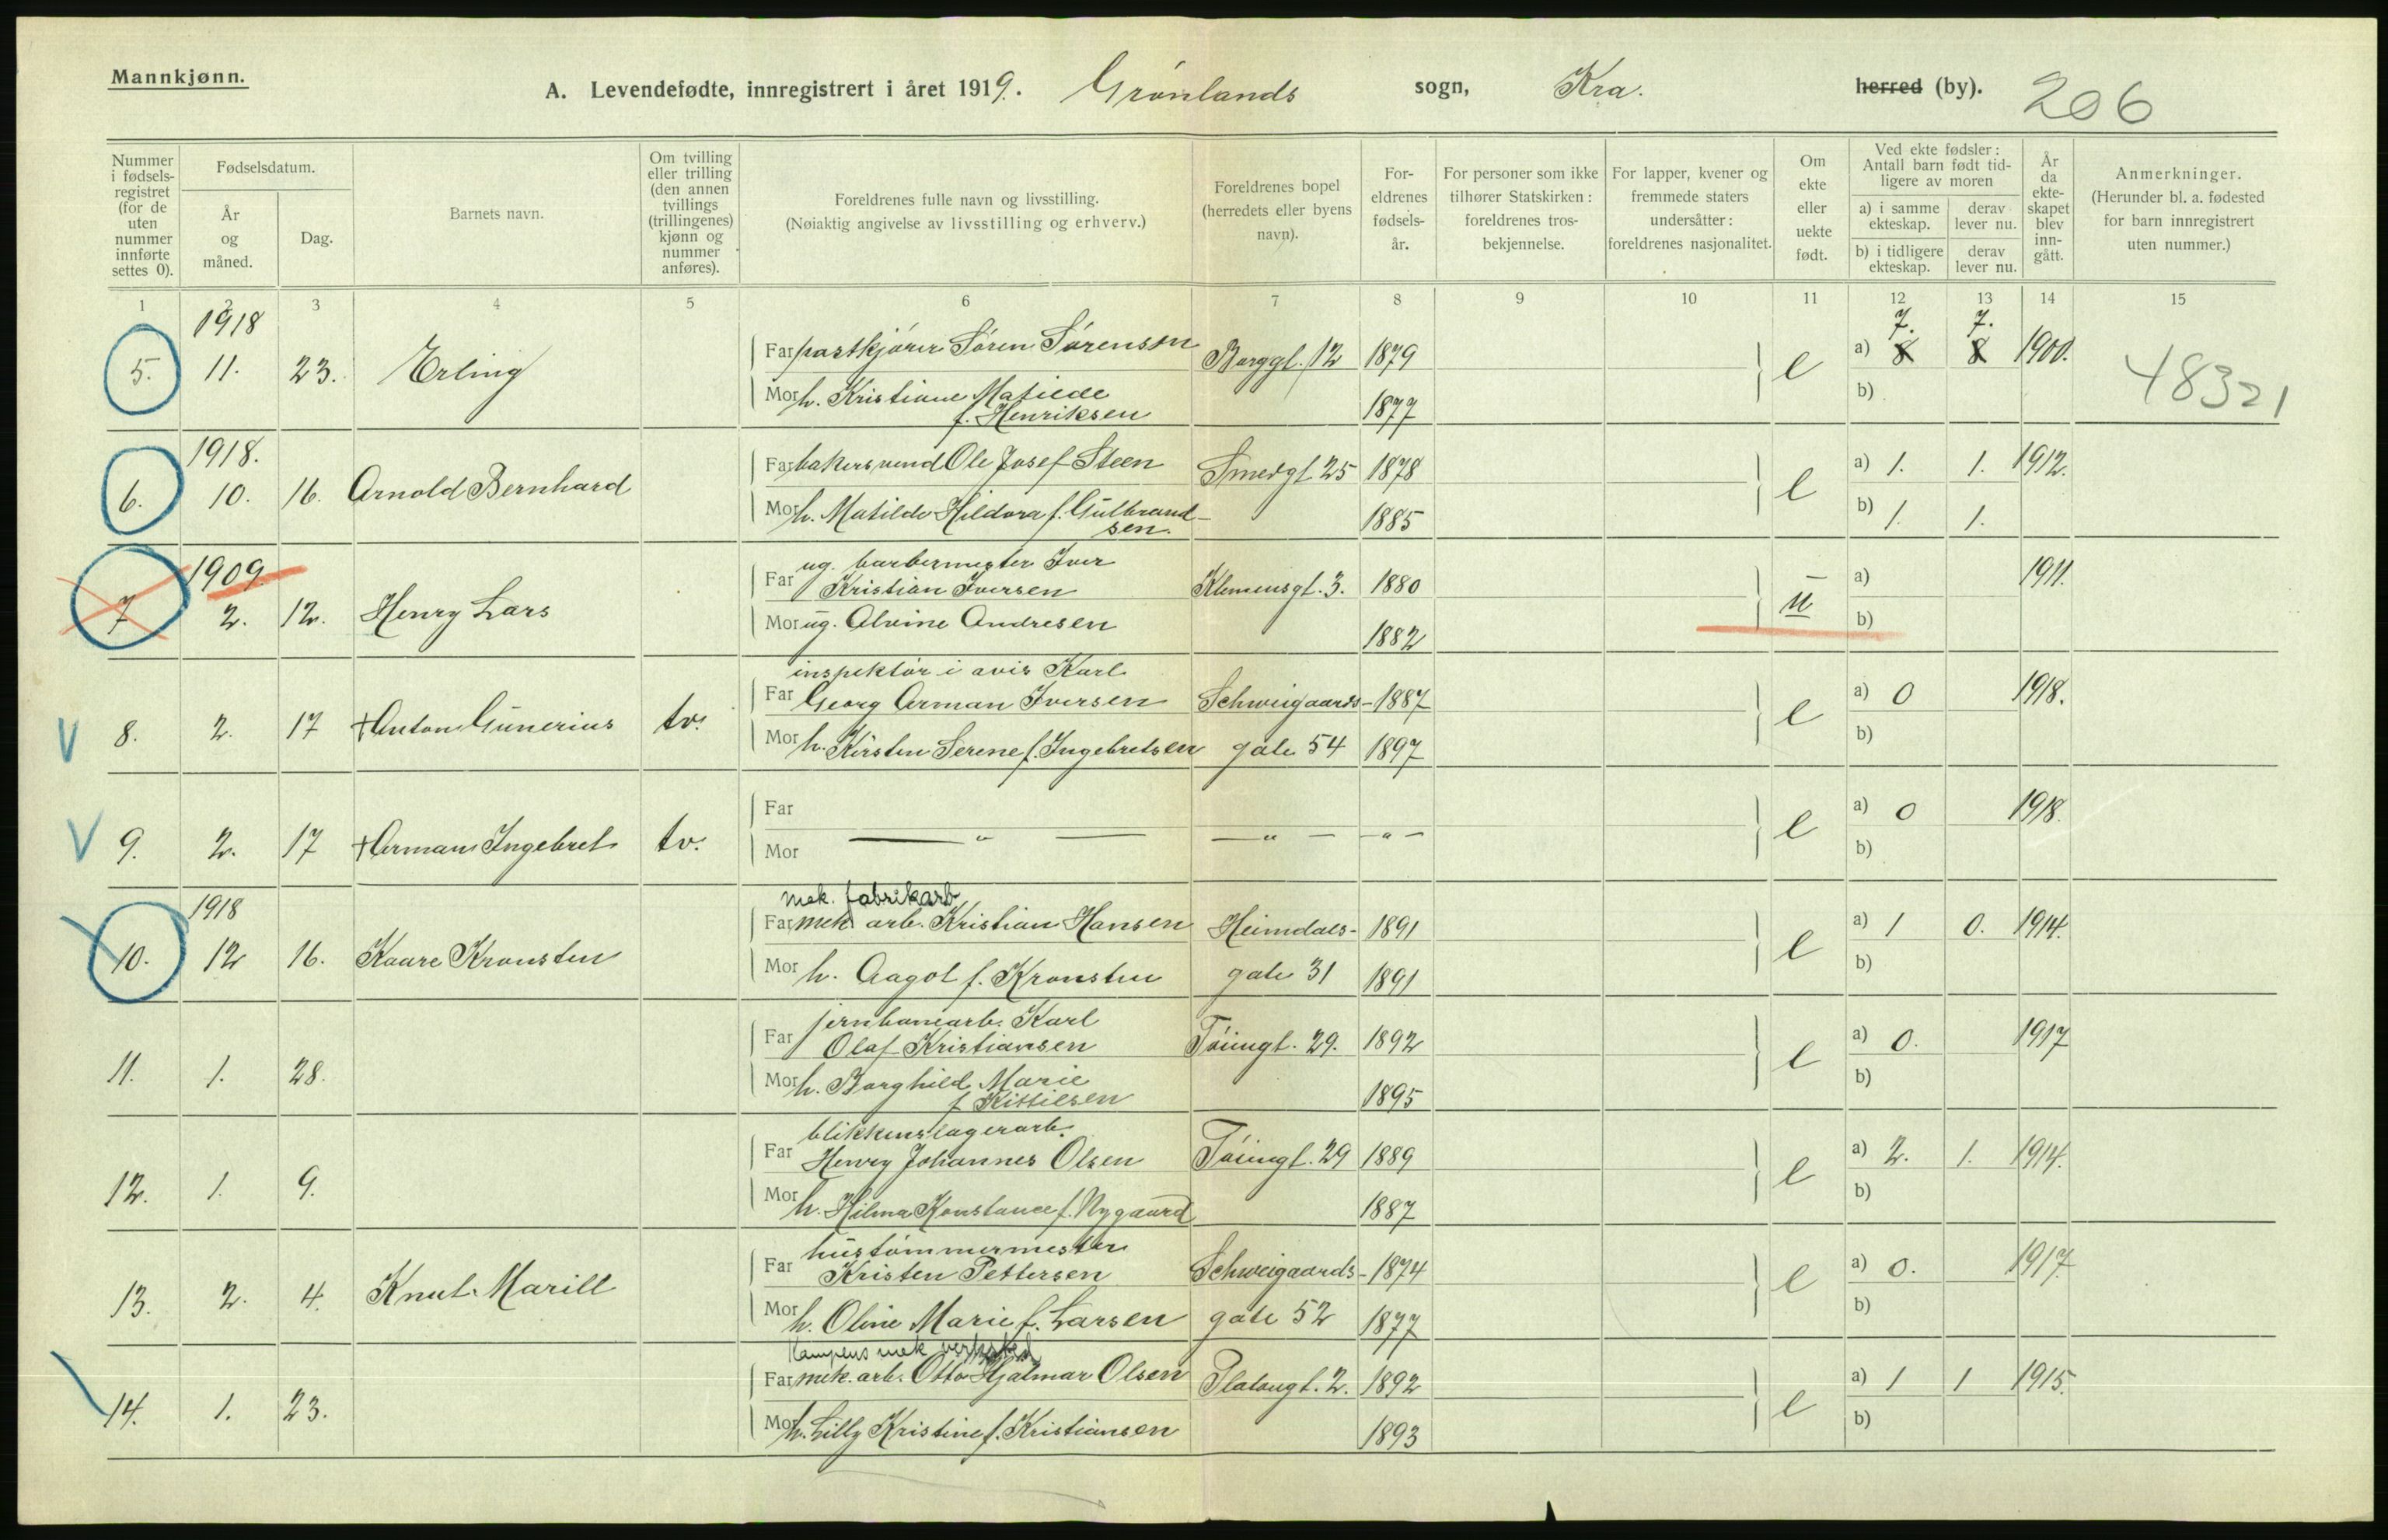 Mannkjønn.
A. Levendefødte, innregistrert i året 1919. Grønlands sogn, Kra. herred (by). 206
Nummer i fødselsregistret (for de uten nummer innførte settes 0).
Fødselsdatum.
År og måned.
Dag.
Barnets navn.
Om tvilling eller trilling (den annen tvillings (trillingenes) kjønn og nummer anføres).
Foreldrenes fulle navn og livsstilling.
(Nøiaktig angivelse av livsstilling og erhverv.)
Foreldrenes bopel (herredets eller byens navn).
Foreldrenes fødselsår.
For personer som ikke tilhører Statskirken: foreldrenes trosbekjennelse.
For lapper, kvener og fremmede staters undersåtter: foreldrenes nasjonalitet.
Om ekte eller uekte født.
Ved ekte fødsler: Antall barn født tidligere av moren
a) i samme ekteskap.
derav lever nu.
b) i tidligere ekteskap.
derav lever nu.
År da ekteskapet blev inngått.
Anmerkninger.
(Herunder bl. a. fødested for barn innregistrert uten nummer.)
1 2 3 4 5 6 7 8 9 10 11 12 13 14 15
1918 7. 7.
5. 11. 23. Erling Far postkjører Søren Sørensen Borggt. 12 1879 e a) 8 8 1900. 48321
Mor h. Kristiane Matilde
f. Henriksen 1877 b)
1918.
6. 10. 16. Arnold Bernhard Far bakersvend Ole Josef Steen Smedgt. 25 1878 e a) 1. 1. 1912.
Mor h. Matilde Hildora f. Gulbrand-
sen. 1885 b) 1. 1.
1909. ug. barbermester Iver
7 2. 12. Henry Lars Far Kristian Iversen Klemensgt. 3. 1880 u a) 1911.
Mor ug. Alvine Andresen 1882 b)
inspektør i avis Karl
V 8. 2. 17 +Anton Gunerius tv. Far Georg Arman Iversen Schweigaards- 1887 e a) 0 1918.
Mor h. Kirsten Serene f. Ingebretsen gate 54 1897 b)
V 9. 2. 17 +Arman Ingebret tv. Far e a) 0 1918.
Mor — " — — " — — " — b)
1918 mek. fabrikarb
10. 12 16. Kaare Kronsten Far mek arb. Kristian Hansen Heimdals- 1891 e a) 1 0. 1914.
Mor h. Aagot f. Kronsten gate 31 1891 b)
jernbanearb. Karl
11. 1. 28. Far Olaf Kristiansen Tøiengt. 29. 1892 e a) 0. 1917
Mor h. Borghild Marie
f Kittilsen 1895 b)
blikkenslagerarb.
12. 1. 9. Far Henry Johannes Olsen Tøiengt. 29 1889 e a) 2. 1. 1914.
Mor h. Hilma Konstance f. Nygaard 1887 b)
hustømmermester
13. 2. 4. Knut Marill Far Kristen Pettersen Schweigaards- 1874 e a) 0. 1917.
Mor h. Oline Marie f. Larsen gate 52 1877 b)
Kampens mek verksted
14. 1. 23. Far mek. arb. Otto Hjalmar Olsen Platougt. 2. 1892 e a) 1 1 1915.
Mor h. Lilly Kristine f. Kristiansen 1893 b)